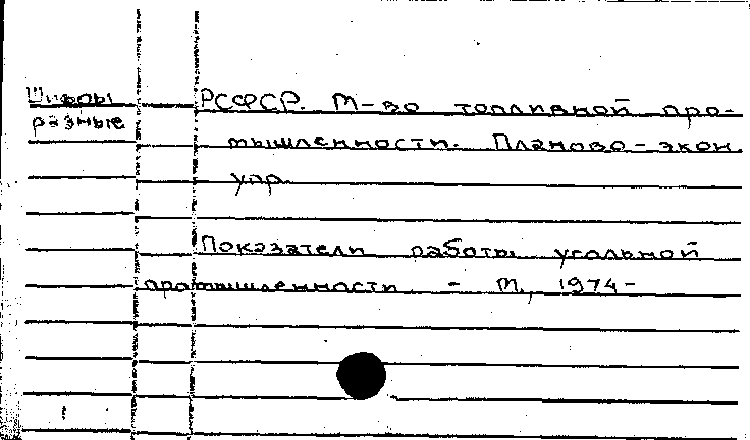 Шифры
разные
РСФСР. М-во топливной про-
мышленности. Планово-экон.
упр.
Показатели работы угольной
промышленности. - М., 1974-